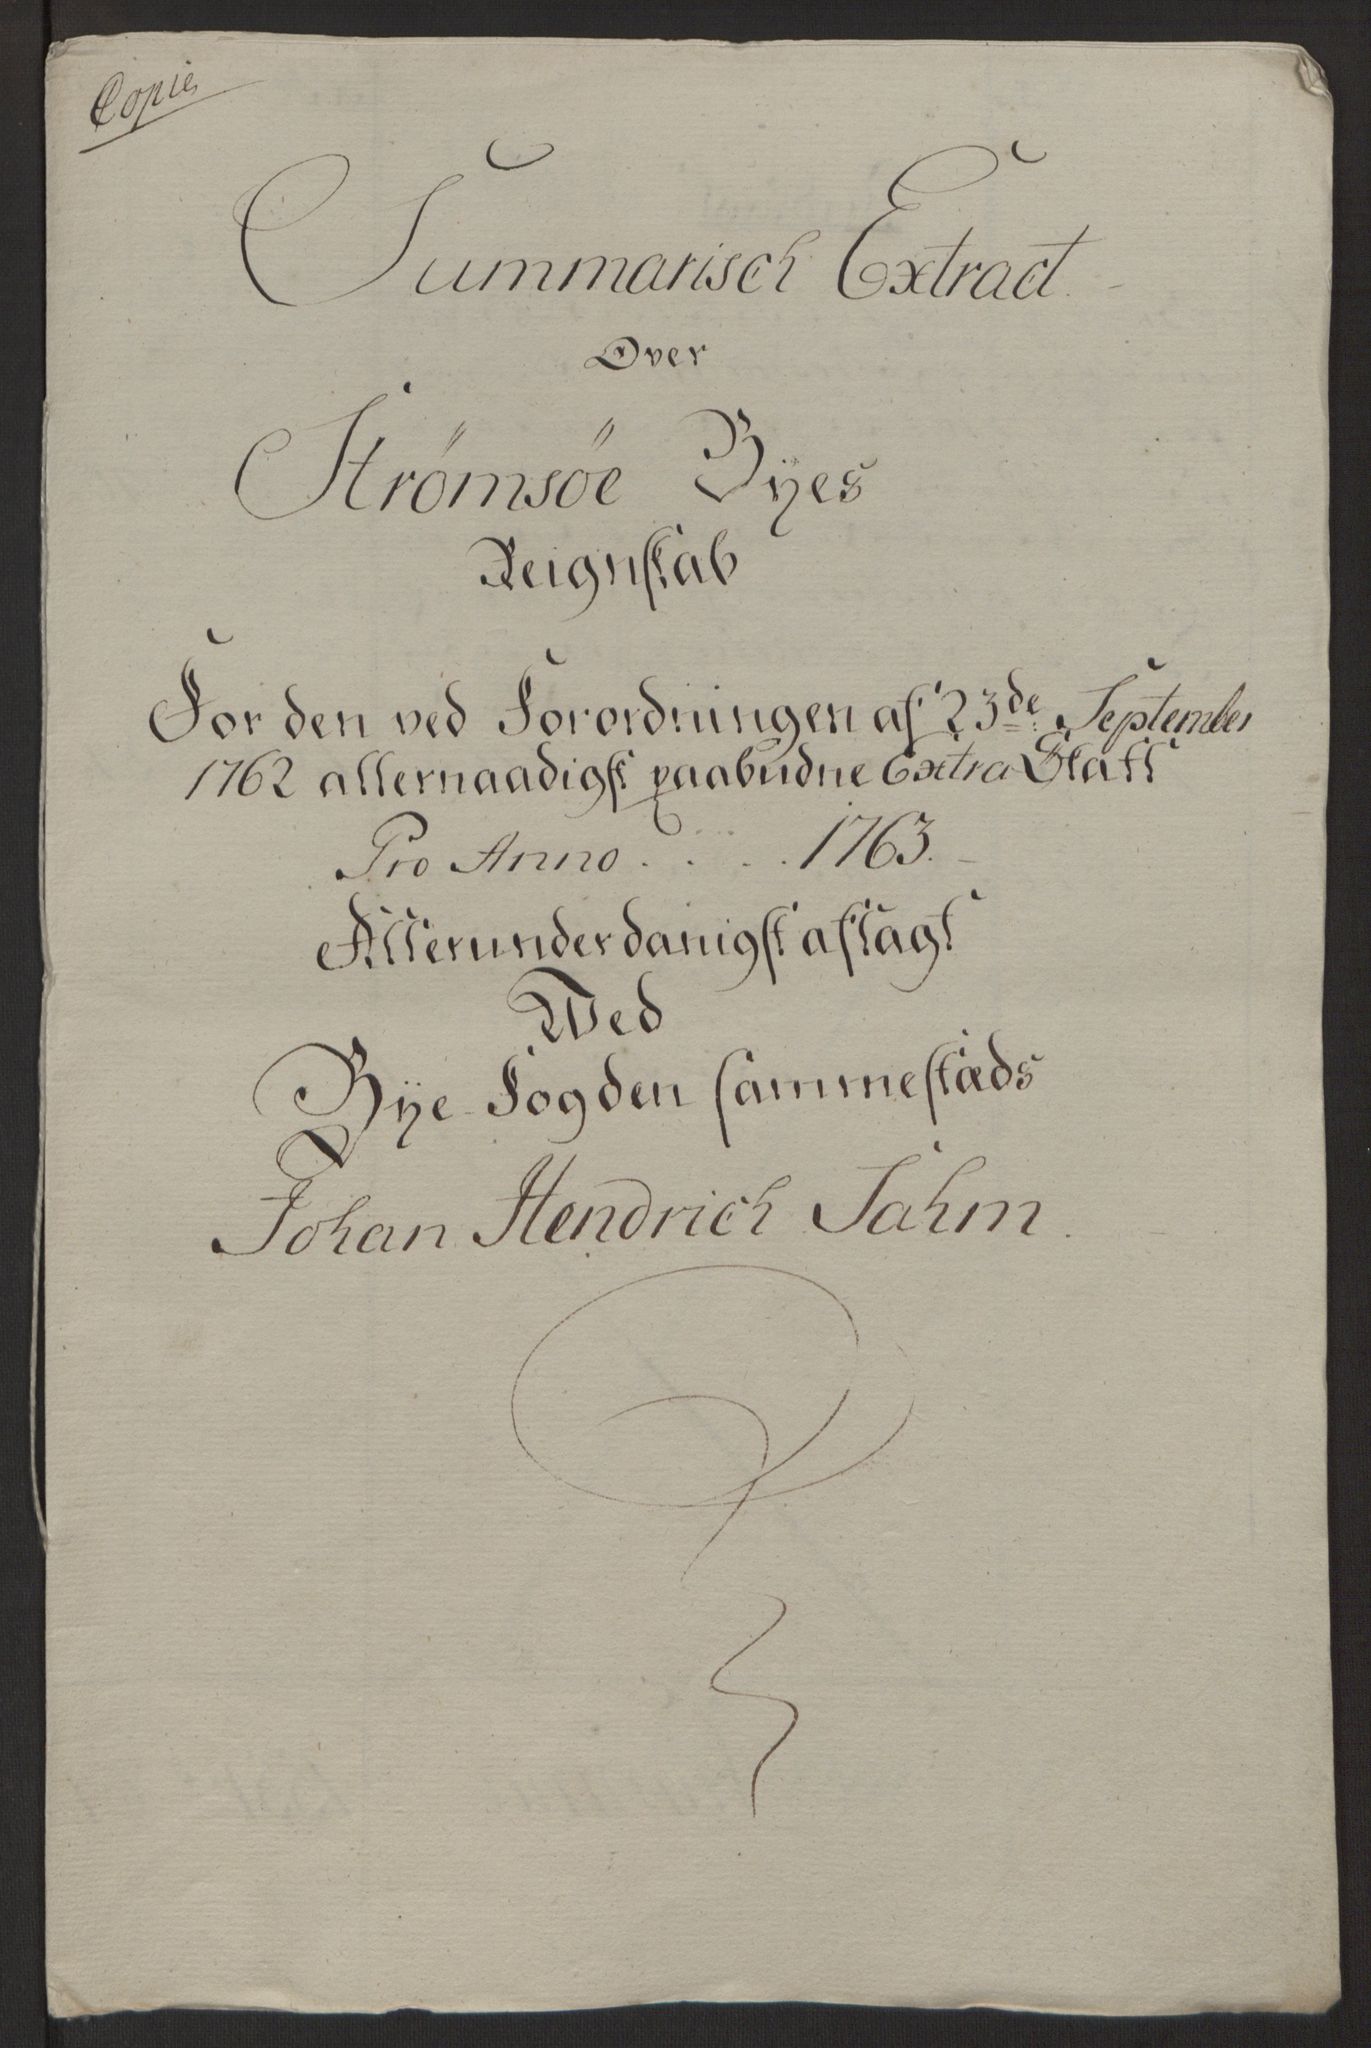 Copie
Summarisch Extract
Over
Strømsøe Byes
Reignskab
For den ved Forordningen af 23de September
1762 allernaadigst paabudne Extra Skatt
Pro Anno . . . . 1763.
Allerunderdanigst aflagt
Ved
Bye Fogden sammestæds
Johan Hendrich Sahm.